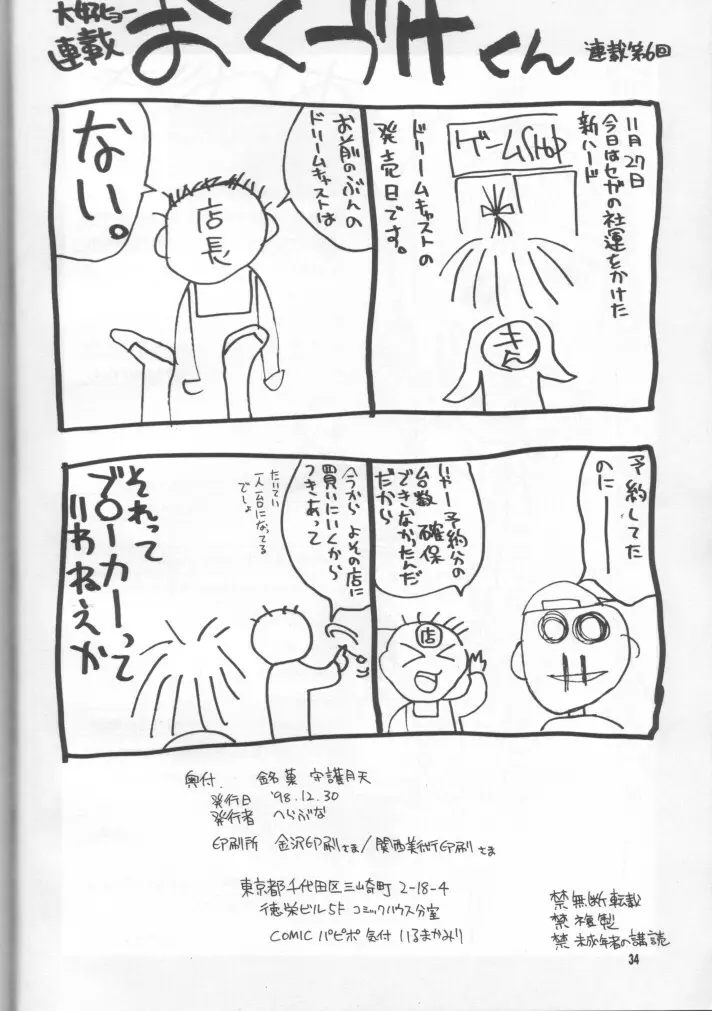 大好ヒョー
連載
おくづけくん
連載第6回
11月27日
今日はセガの社運をかけた
新ハード
ドリームキャストの
発売日です。
ゲームSHOP
きん
お前のぶんの
ドリームキャストは
ない。
店長
予約してた
のにーー
いやー予約分の
台数 確保
できなかったんだ
だから
店
今から よその店に
買いにいくから
つきあって
たいてい
一人一台になってる
でしょ
それって
ブローカーって
いわねえか
奥付.
銘菓 守護月天
発行日 '98.12.30
発行者 へらぶな
印刷所 金沢印刷さま/関西美術印刷さま
東京都千代田区三崎町 2-18-4
徳栄ビル5F コミックハウス分室
COMIC パピポ 気付 いるまかみり
禁 無断転載
禁 複製
禁 未成年者の講読
34